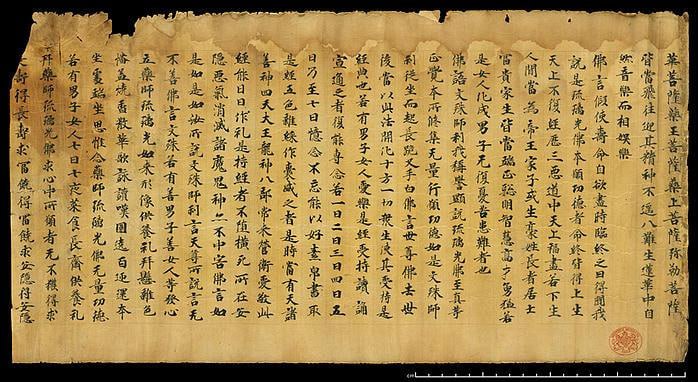 華菩薩藥王菩薩藥上菩薩弥勒菩薩
皆當飛往迎其精神不逕八難生蓮華中自
然音樂而相娛樂
佛言假使壽命自欲盡時臨終之日得聞我
說是琉璃光佛本願功德者命終皆得上生
天上不復經歷三惡道中天上福盡若下生
人間當為帝王家子或生豪姓長者居士
富貴家生皆當端正聰明智慧高才勇猛若
是女人化成男子无復憂苦患難者也
佛語文殊師利我稱譽顯說琉璃光佛至真等
正覺本所修集无量行願功德如是文殊師
利從坐而起長跪叉手白佛言世尊佛去世
後當以此法開化十方一切衆生使其受持是
經典也若有男子女人愛樂是經受持讀誦
宣通之者復能專念若一日二日三日四日五
日乃至七日憶念不忘能以好素帛書取
是經五色雜綵作囊盛之者是時當有天諸
善神四天大王龍神八部常來營衛愛敬此
經能日日作礼是持經者不墮橫死所在安
隱惡氣消滅諸魔鬼神亦不中害佛言如
是如是如汝所說文殊師利言天尊所說言无
不善佛言文殊若有善男子善女人等發心
立藥師琉璃光如來形像供養礼拜懸雜色
幡蓋燒香散華歌詠讚嘆圍遶百迊還本
坐處端坐思惟念藥師琉璃光佛无量功德
若有男子女人七日七夜菜食長齋供養礼
拜藥師琉璃光佛求心中所願者无不獲得求
壽得長壽求富饒得富饒求安隱得安隱